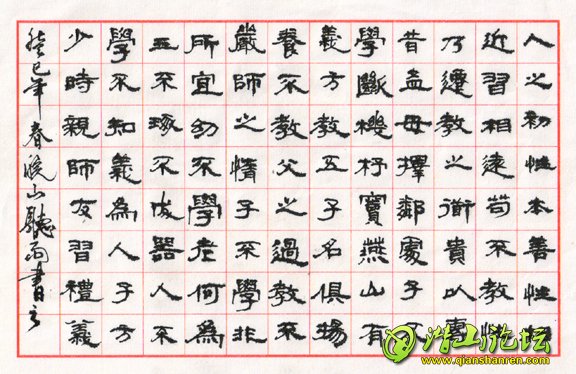 人之初性本善性相
近習相遠苟不教性
乃遷教之道貴以專
昔孟母擇鄰處子不
學斷機杼竇燕山有
義方教五子名俱揚
養不教父之過教不
嚴師之惰子不學非
所宜幼不學老何為
玉不琢不成器人不
學不知義為人子方
少時親師友習禮義
癸巳年春皖山聽雨書之
潜山论坛
www.qianshanren.com